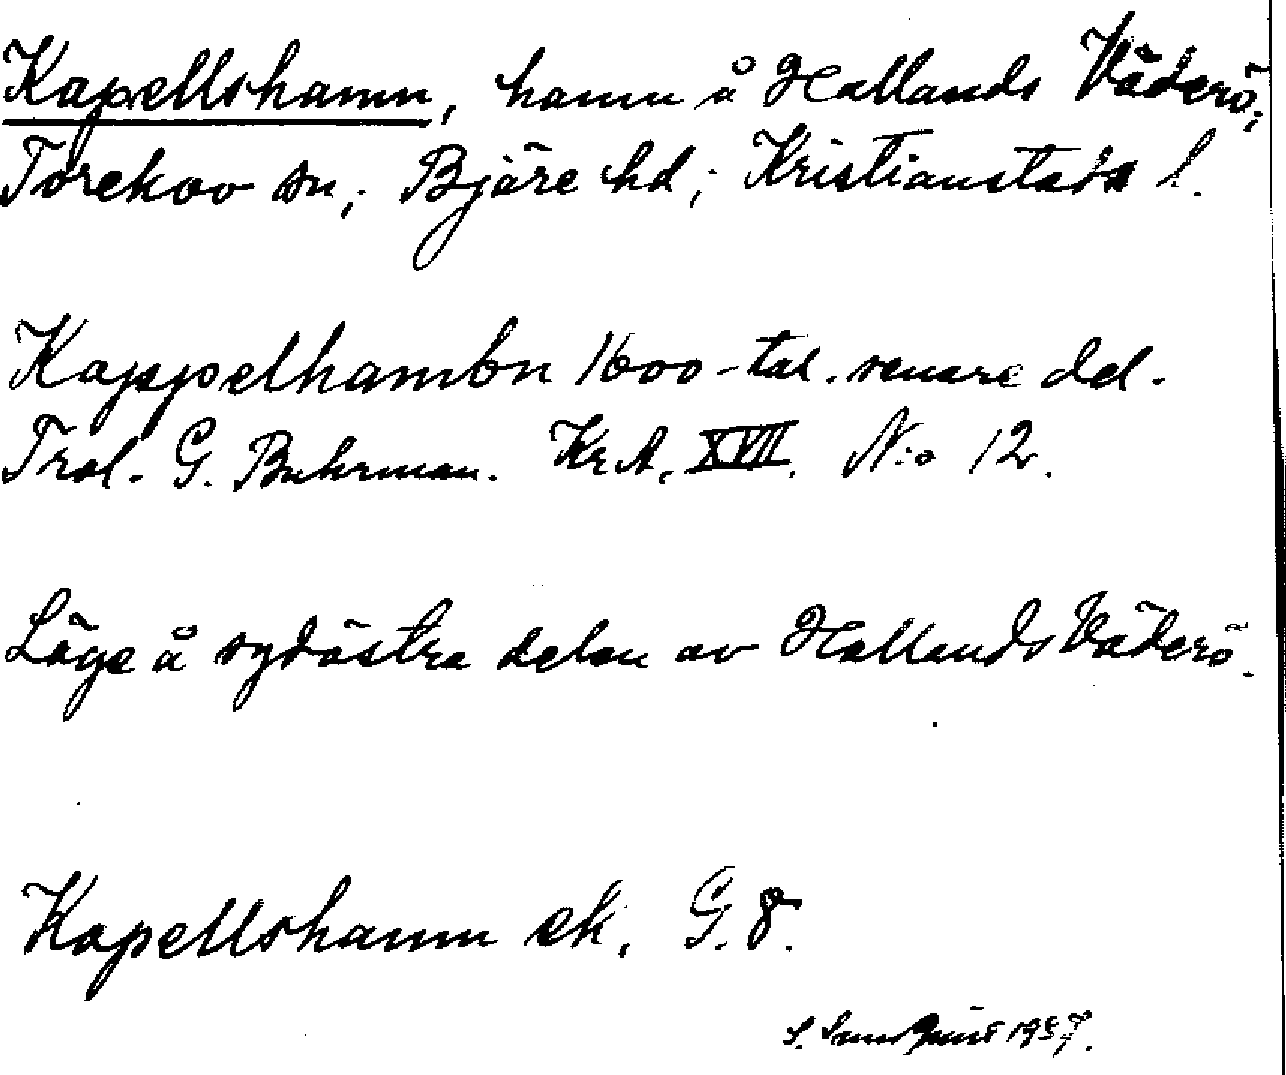 Kapellshamn, hamn å Hallands Väderö;
Torekov sn; Bjäre hd; Kristianstads l.
Kappelhambn 1600-tal. senare del.
Trol. G. Buhrman. Kr.A. XVII. N:o 12.
Läge å sydöstra delen av Hallands Väderö.
Kapellshamn ek. G.8.
S. 1937.